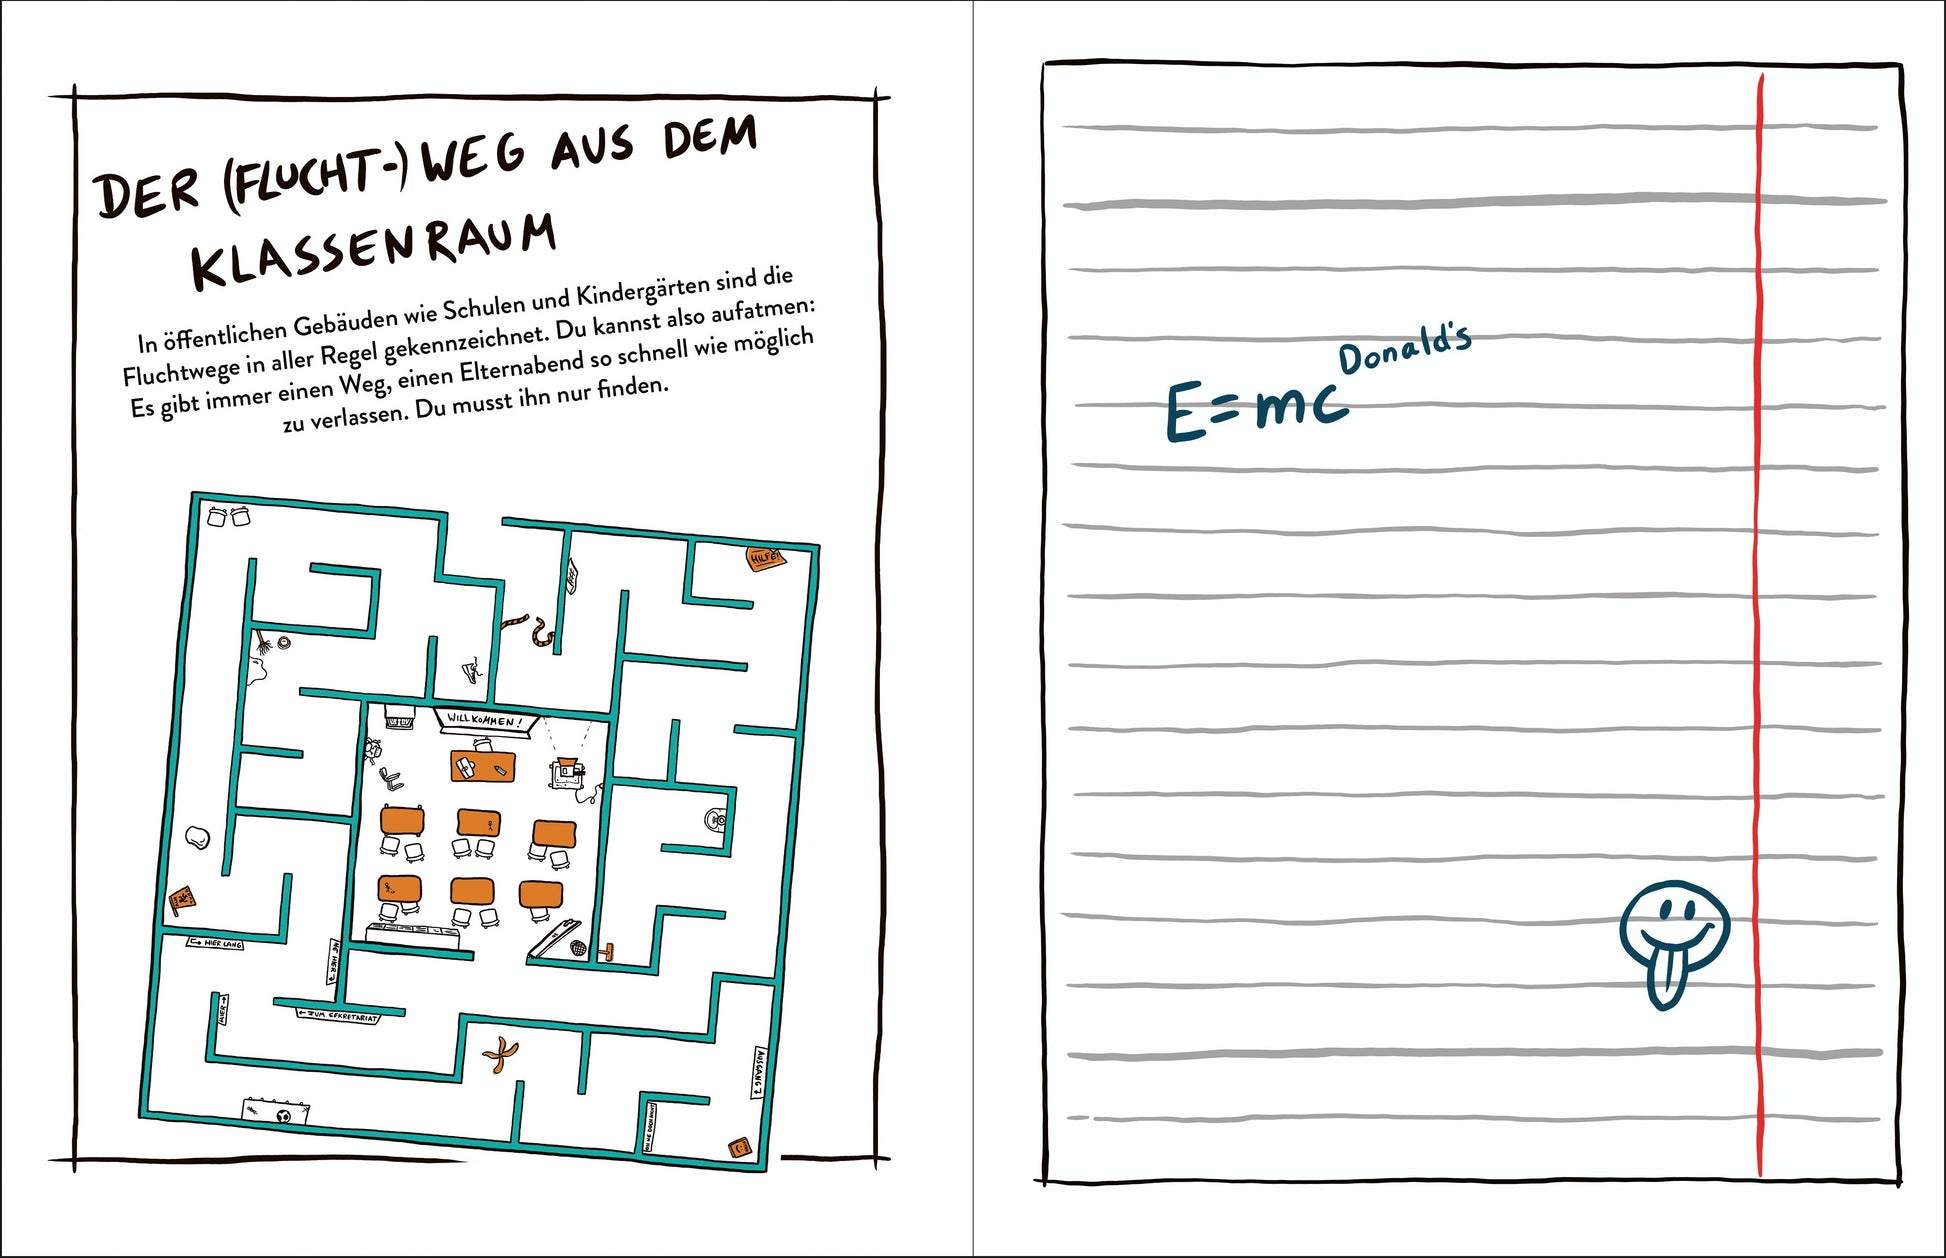 DER (FLUCHT-) WEG AUS DEM
KLASSENRAUM
In öffentlichen Gebäuden wie Schulen und Kindergärten sind die
Fluchtwege in aller Regel gekennzeichnet. Du kannst also aufatmen:
Es gibt immer einen Weg, einen Elternabend so schnell wie möglich
zu verlassen. Du musst ihn nur finden.
HILFE!
WILLKOMMEN!
HIER LANG
NE HIER
HIER →
← ZUM SEKRETARIAT
AUSGANG
OH NE DOCH NICHT
E=mc Donald's